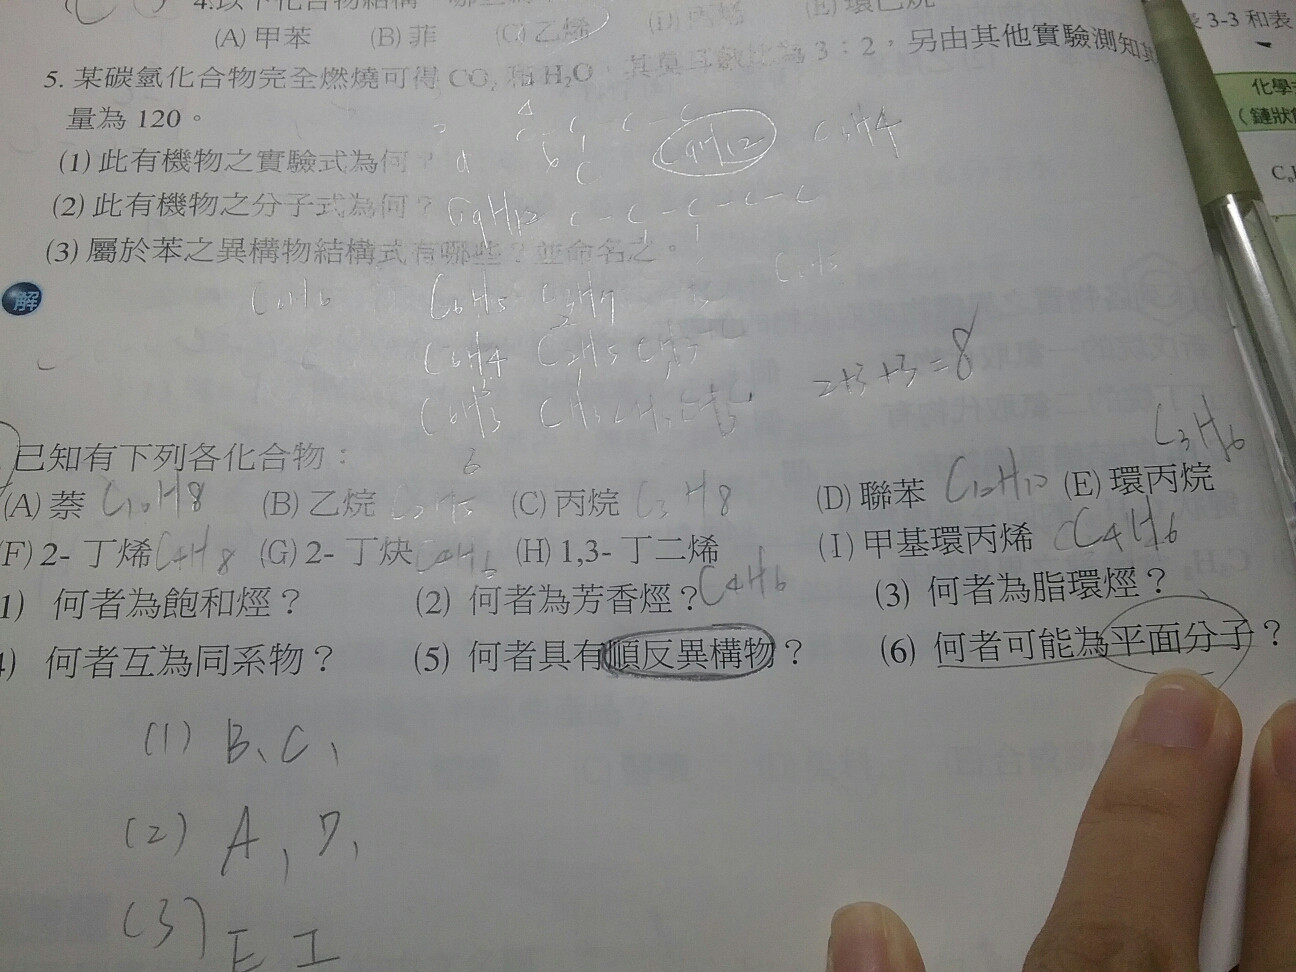 (A) 甲苯 (B) 菲 (C) 乙烯 (D) 丙烯 (E) 環己烷
表 3-3 和表
5. 某碳氫化合物完全燃燒可得 CO₂ 和 H₂O 其莫耳數比為 3：2，另由其他實驗測知其
量為 120。
化學
(鏈狀
(1) 此有機物之實驗式為何？ C9H12 C3H4
(2) 此有機物之分子式為何？ C9H12 C-C-C-C-C
(3) 屬於苯之異構物結構式有哪些？並命名之。
解
C6H6 C6H5 C3H7
C6H4 C2H5 CH3
C6H3 CH3 CH3 CH3
2+3+3=8
已知有下列各化合物：
(A) 萘 C10H8 (B) 乙烷 C2H5 (C) 丙烷 C3H8 (D) 聯苯 C12H10 (E) 環丙烷 C3H6
(F) 2- 丁烯 C4H8 (G) 2- 丁炔 C4H6 (H) 1,3- 丁二烯 C4H6 (I) 甲基環丙烯 C4H6
1) 何者為飽和烴？ (2) 何者為芳香烴？ (3) 何者為脂環烴？
4) 何者互為同系物？ (5) 何者具有順反異構物？ (6) 何者可能為平面分子？
(1) B、C、
(2) A、D、
(3) E I